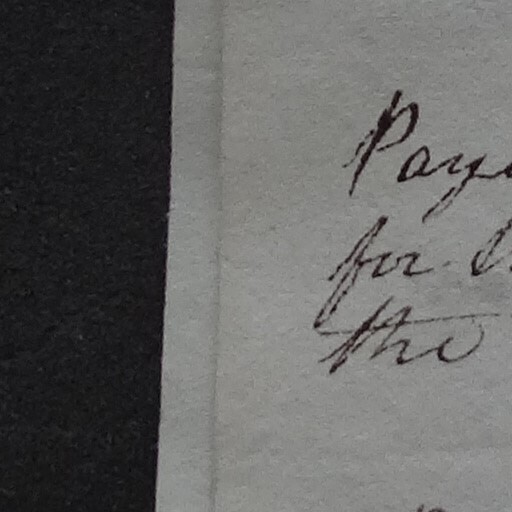 Pay
for
the